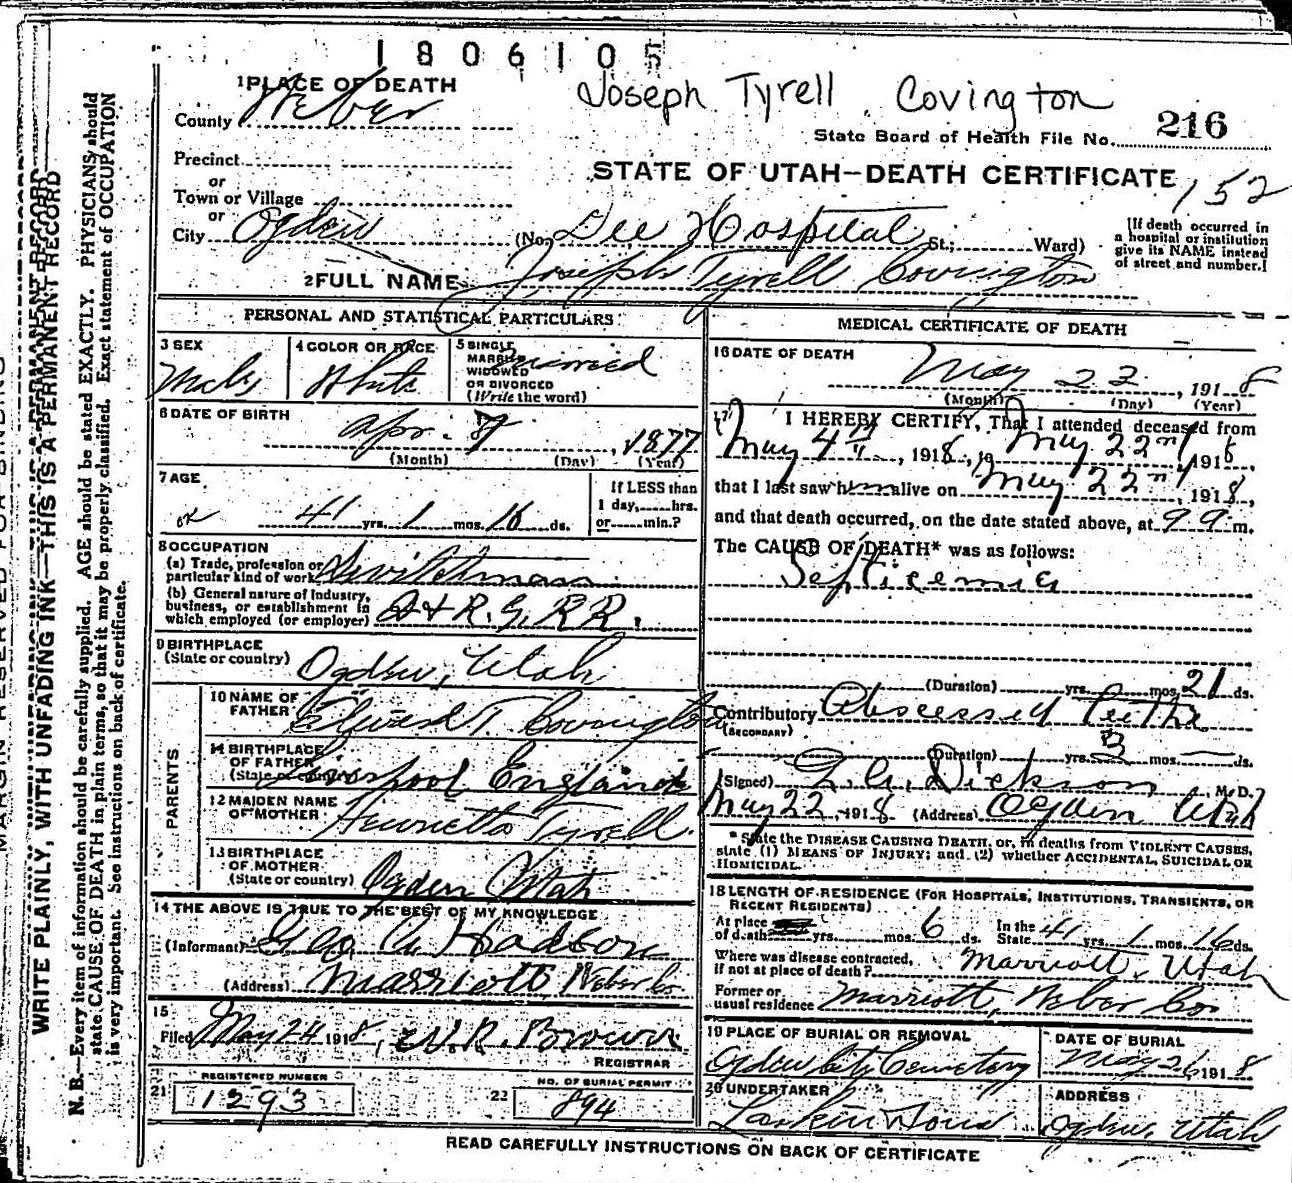 1806105
Joseph Tyrell Covington
1 PLACE OF DEATH
County Weber
State Board of Health File No. 216
Precinct
or
Town or Village
or
City Ogden
STATE OF UTAH—DEATH CERTIFICATE 152
(No. Dee Hospital St.; Ward)
[If death occurred in
a hospital or institution
give its NAME instead
of street and number.]
2 FULL NAME Joseph Tyrell Covington
PERSONAL AND STATISTICAL PARTICULARS
3 SEX
Male
4 COLOR OR RACE
White
5 SINGLE
MARRIED
WIDOWED
OR DIVORCED
(Write the word)
married
6 DATE OF BIRTH
Apr. 7, 1877
(Month) (Day) (Year)
7 AGE
OK 41 yrs. 1 mos. 16 ds.
If LESS than
1 day, hrs.
or min.?
8 OCCUPATION
(a) Trade, profession or
particular kind of work Switchman
(b) General nature of Industry,
business, or establishment in
which employed (or employer) D & R. G. RR.
9 BIRTHPLACE
(State or country) Ogden, Utah
PARENTS
10 NAME OF
FATHER Edward T. Covington
11 BIRTHPLACE
OF FATHER
(State or country) Liverpool England
12 MAIDEN NAME
OF MOTHER Henrietta Tyrell
13 BIRTHPLACE
OF MOTHER
(State or country) Ogden Utah
14 THE ABOVE IS TRUE TO THE BEST OF MY KNOWLEDGE
(Informant) Geo. A. Hadson
(Address) Marriott Weber Co.
15
Filed May 24 1918, W. R. Brown
REGISTRAR
21 REGISTERED NUMBER
1293
22 NO. OF BURIAL PERMIT
894
MEDICAL CERTIFICATE OF DEATH
16 DATE OF DEATH
May 22, 1918
(Month) (Day) (Year)
17 I HEREBY CERTIFY, That I attended deceased from
May 4th, 1918, to May 22nd, 1918,
that I last saw him alive on May 22nd, 1918,
and that death occurred, on the date stated above, at 9 a m.
The CAUSE OF DEATH* was as follows:
Septicemia
(Duration) yrs. mos. 21 ds.
Contributory Abscessed Teeth
(SECONDARY)
(Duration) yrs. 3 mos. — ds.
(Signed) Dickson, M. D.
May 22, 1918 (Address) Ogden Utah
* State the DISEASE CAUSING DEATH, or, in deaths from VIOLENT CAUSES,
state (1) MEANS OF INJURY; and (2) whether ACCIDENTAL, SUICIDAL OR
HOMICIDAL.
18 LENGTH OF RESIDENCE (FOR HOSPITALS, INSTITUTIONS, TRANSIENTS, OR
RECENT RESIDENTS)
At place
of death yrs. mos. 6 ds. In the
State 41 yrs. 1 mos. 16 ds.
Where was disease contracted,
if not at place of death? Marriott, Utah
Former or
usual residence Marriott, Weber Co
19 PLACE OF BURIAL OR REMOVAL
Ogden City Cemetery
DATE OF BURIAL
May 26 1918
20 UNDERTAKER
Larkin Sons
ADDRESS
Ogden, Utah
READ CAREFULLY INSTRUCTIONS ON BACK OF CERTIFICATE
MARGIN RESERVED FOR BINDING
WRITE PLAINLY, WITH UNFADING INK—THIS IS A PERMANENT RECORD
N. B.—Every item of information should be carefully supplied. AGE should be stated EXACTLY. PHYSICIANS should
state CAUSE OF DEATH in plain terms, so that it may be properly classified. Exact statement of OCCUPATION
is very important. See instructions on back of certificate.